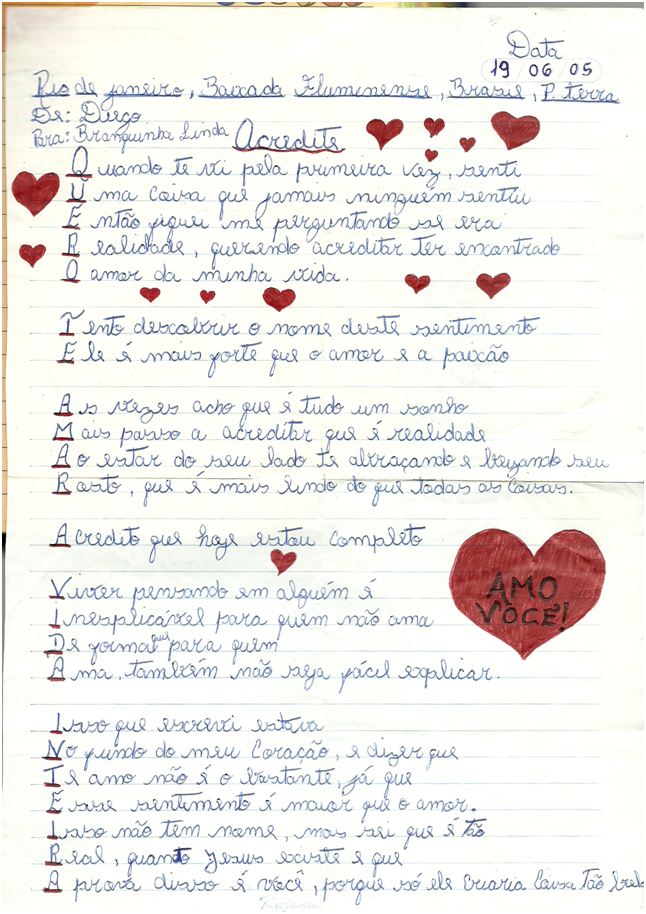 Data
19 / 06 / 05
Rio de janeiro, Baixada Fluminense, Brasil, P. terra
De: Diego
Para: Branquinha Linda
Acredite
Quando te vi pela primeira vez, senti
Uma coisa que jamais ninguém sentiu
Então fiquei me perguntando se era
Realidade, querendo acreditar ter encontrado
O amor da minha vida.
Tento descobrir o nome deste sentimento
Ele é mais forte que o amor e a paixão
As vezes acho que é tudo um sonho
Mais passo a acreditar que é realidade
Ao estar do seu lado te abraçando e beijando seu
Rosto, que é mais lindo do que todas as Coisas.
Acredito que hoje estou Completo
Viver pensando em alguém é
AMO
VOCÊ!
Inesplicável para quem não ama
De forma que para quem
Ama, também não seja fácil explicar.
Isso que escrevi estava
No fundo do meu Coração, e dizer que
Te amo não é o bastante, já que
Esse sentimento é maior que o amor.
Isso não tem nome, mas sei que é tão
Real, quanto Jesus existe e que
A prova disso é você, porque só ele Criaria Coisa Tão bela